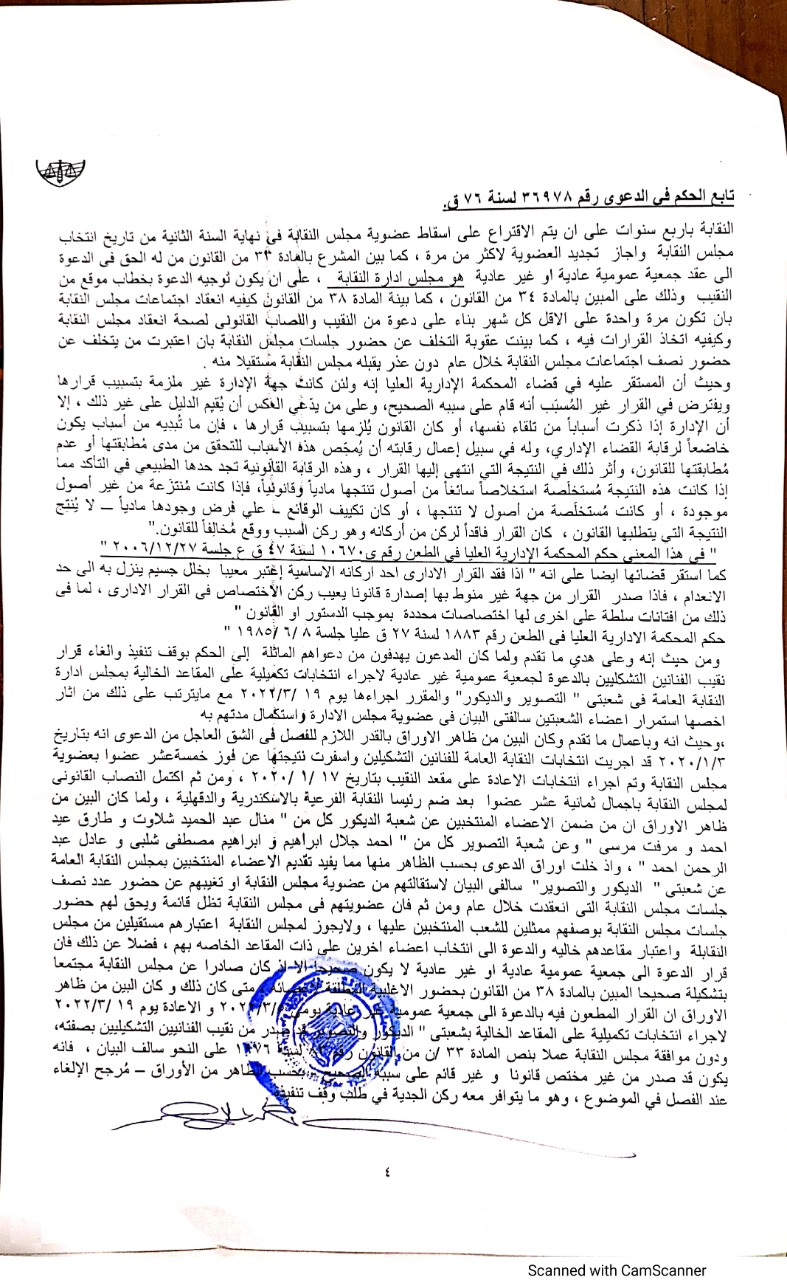 تابع الحكم في الدعوى رقم ٣٦٩٧٨ لسنة ٧٦ ق.
النقابة باربع سنوات على ان يتم الاقتراع على اسقاط عضوية مجلس النقابة في نهاية السنة الثانية من تاريخ انتخاب
مجلس النقابة واجاز تجديد العضوية لاكثر من مرة ، كما بين المشرع بالمادة ٣٣ من القانون من له الحق فى الدعوة
الى عقد جمعية عمومية عادية او غير عادية هو مجلس ادارة النقابة ، على ان يكون توجيه الدعوة بخطاب موقع من
النقيب وذلك على المبين بالمادة ٣٤ من القانون ، كما بينة المادة ٣٨ من القانون كيفيه انعقاد اجتماعات مجلس النقابة
بان تكون مرة واحدة على الاقل كل شهر بناء على دعوة من النقيب والنصاب القانونى لصحة انعقاد مجلس النقابة
وكيفيه اتخاذ القرارات فيه ، كما بينت عقوبة التخلف عن حضور جلسات مجلس النقابة بان اعتبرت من يتخلف عن
حضور نصف اجتماعات مجلس النقابة خلال عام دون عذر يقبله مجلس النقابة مستقيلا منه .
وحيث أن المستقر عليه في قضاء المحكمة الإدارية العليا إنه ولئن كانت جهة الإدارة غير ملزمة بتسبيب قرارها
ويفترض في القرار غير المُسبب أنه قام على سببه الصحيح، وعلى من يدّعي العكس أن يُقيم الدليل على غير ذلك ، إلا
أن الإدارة إذا ذكرت أسباباً من تلقاء نفسها، أو كان القانون يُلزمها بتسبيب قرارها ، فإن ما تُبديه من أسباب يكون
خاضعاً لرقابة القضاء الإداري، وله في سبيل إعمال رقابته أن يُمحّص هذه الأسباب للتحقق من مدى مُطابقتها أو عدم
مُطابقتها للقانون، وأثر ذلك في النتيجة التي انتهى إليها القرار ، وهذه الرقابة القانونية تجد حدها الطبيعي في التأكد مما
إذا كانت هذه النتيجة مستخلصة استخلاصاً سائغاً من أصول تنتجها مادياً وقانونياً، فإذا كانت مُنتزعة من غير أصول
موجودة ، أو كانت مُستخلصة من أصول لا تنتجها ، أو كان تكييف الوقائع – علي فرض وجودها مادياً – لا يُنتج
النتيجة التي يتطلبها القانون ، كان القرار فاقداً لركن من أركانه وهو ركن السبب ووقع مُخالفاً للقانون."
" في هذا المعني حكم المحكمة الإدارية العليا في الطعن رقم ١٠٦٧٠ لسنة ٤٧ ق ع جلسة ٢٠٠٦/١٢/٢٧ "
كما استقر قضائها ايضا على انه " اذا فقد القرار الادارى احد اركانه الاساسية إعتبر معيبا بخلل جسيم ينزل به الى حد
الانعدام ، فاذا صدر القرار من جهة غير منوط بها إصدارة قانونا يعيب ركن الأختصاص فى القرار الادارى ، لما فى
ذلك من افتئات سلطة على اخرى لها اختصاصات محددة بموجب الدستور او القانون "
حكم المحكمة الادارية العليا فى الطعن رقم ١٨٨٣ لسنة ٢٧ ق عليا جلسة ٨ / ٦ / ١٩٨٥ "
ومن حيث إنه وعلى هدي ما تقدم ولما كان المدعون يهدفون من دعواهم الماثلة إلى الحكم بوقف تنفيذ والغاء قرار
نقيب الفنانين التشكليين بالدعوة لجمعية عمومية غير عادية لاجراء انتخابات تكميلية على المقاعد الخالية بمجلس ادارة
النقابة العامة فى شعبتى " التصوير والديكور" والمقرر اجراءها يوم ١٩ /٢٠٢٢/٣ مع مايترتب على ذلك من اثار
اخصها استمرار اعضاء الشعبتين سالفتى البيان فى عضوية مجلس الادارة واستكمال مدتهم به
،وحيث انه وباعمال ما تقدم وكان البين من ظاهر الاوراق بالقدر اللازم للفصل فى الشق العاجل من الدعوى انه بتاريخ
٢٠٢٠/١/٣ قد اجريت انتخابات النقابة العامة للفنانين التشكلين واسفرت نتيجتها عن فوز خمسةعشر عضوا بعضوية
مجلس النقابة وتم اجراء انتخابات الاعادة على مقعد النقيب بتاريخ ١٧ /١ /٢٠٢٠ ، ومن ثم اكتمل النصاب القانونى
لمجلس النقابة باجمال ثمانية عشر عضوا بعد ضم رئيسا النقابة الفرعية بالاسكندرية والدقهلية ، ولما كان البين من
ظاهر الاوراق ان من ضمن الاعضاء المنتخبين عن شعبة الديكور كل من " منال عبد الحميد شلاوت و طارق عيد
احمد و مرفت مرسى " وعن شعبة التصوير كل من " احمد جلال ابراهيم و ابراهيم مصطفى شلبى و عادل عبد
الرحمن احمد " ، واذ خلت اوراق الدعوى بحسب الظاهر منها مما يفيد تقديم الاعضاء المنتخبين بمجلس النقابة العامة
عن شعبتى " الديكور والتصوير" سالفى البيان لاستقالتهم من عضوية مجلس النقابة او تغيبهم عن حضور عدد نصف
جلسات مجلس النقابة التى انعقدت خلال عام ومن ثم فان عضويتهم فى مجلس النقابة تظل قائمة ويحق لهم حضور
جلسات مجلس النقابة بوصفهم ممثلين للشعب المنتخبين عليها ، ولايجوز لمجلس النقابة اعتبارهم مستقيلين من مجلس
النقابلة واعتبار مقاعدهم خاليه والدعوة الى انتخاب اعضاء اخرين على ذات المقاعد الخاصه بهم ، فضلا عن ذلك فان
قرار الدعوة الى جمعية عمومية عادية او غير عادية لا يكون صحيحا الا اذ كان صادرا عن مجلس النقابة مجتمعا
بتشكيلة صحيحا المبين بالمادة ٣٨ من القانون بحضور الاغلبية المطلقة ، متى كان ذلك و كان البين من ظاهر
الاوراق ان القرار المطعون فيه بالدعوة الى جمعية عمومية غير عادية يومى و الاعادة يوم ١٩ /٢٠٢٢/٣
لاجراء انتخابات تكميلية على المقاعد الخالية بشعبتى " الديكور والتصوير قد صدر من نقيب الفنانيين التشكيليين بصفته،
ودون موافقة مجلس النقابة عملا بنص المادة ٣٣ /ن من القانون رقم لسنة ١٩٧٦ على النحو سالف البيان ، فانه
يكون قد صدر من غير مختص قانونا و غير قائم على سببه الصحيح بحسب الظاهر من الأوراق – مُرجح الإلغاء
عند الفصل في الموضوع ، وهو ما يتوافر معه ركن الجدية في طلب وقف تنفيذه.
٤
Scanned with CamScanner